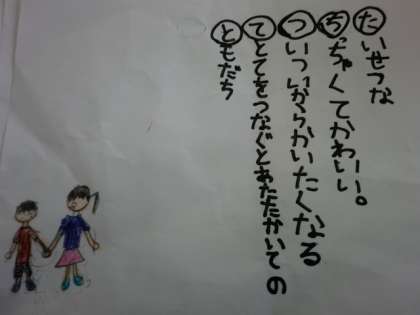 たいせつな
ちっちゃくてかわいい。
ついついからかいたくなる
てとてをつなぐとあたたかいての
ともだち